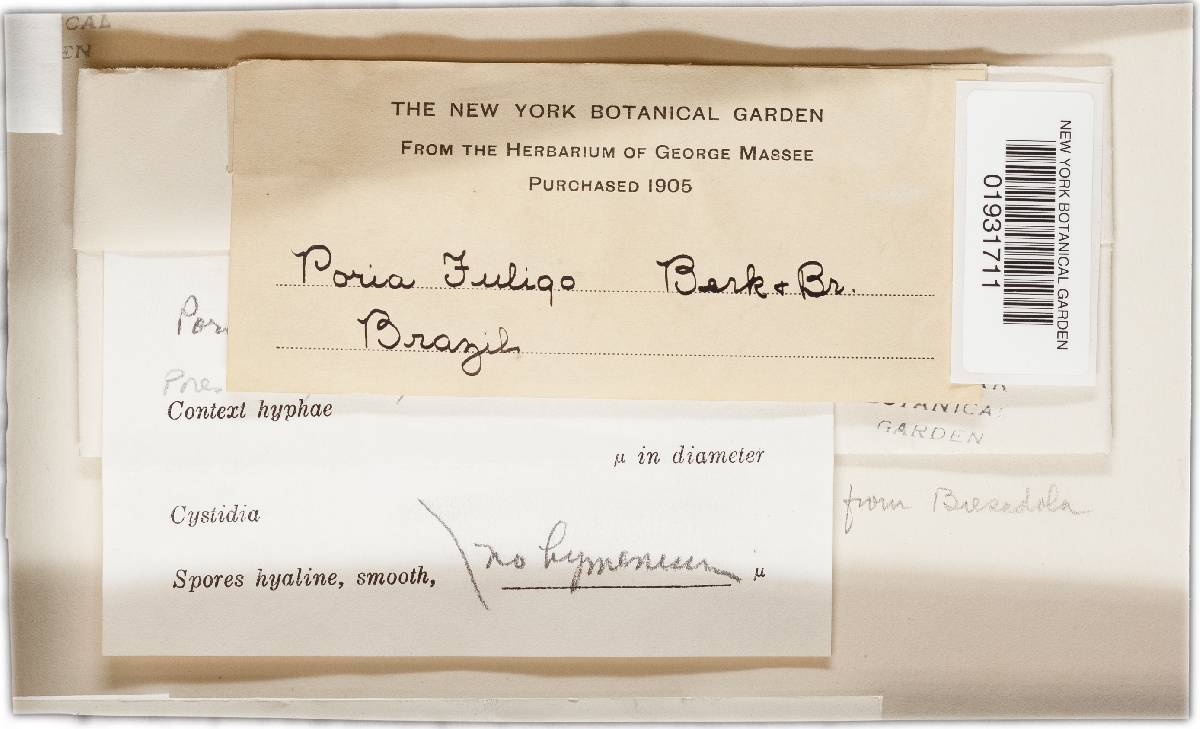 CAL
EN
THE NEW YORK BOTANICAL GARDEN
FROM THE HERBARIUM OF GEORGE MASSEE
PURCHASED 1905
Poria Fuligo Berk & Br.
Brazil
NEW YORK BOTANICAL GARDEN
01931711
Por
Pores
Context hyphae
μ in diameter
Cystidia
Spores hyaline, smooth, no hymenium μ
BOTANICAL
GARDEN
from Bresadola